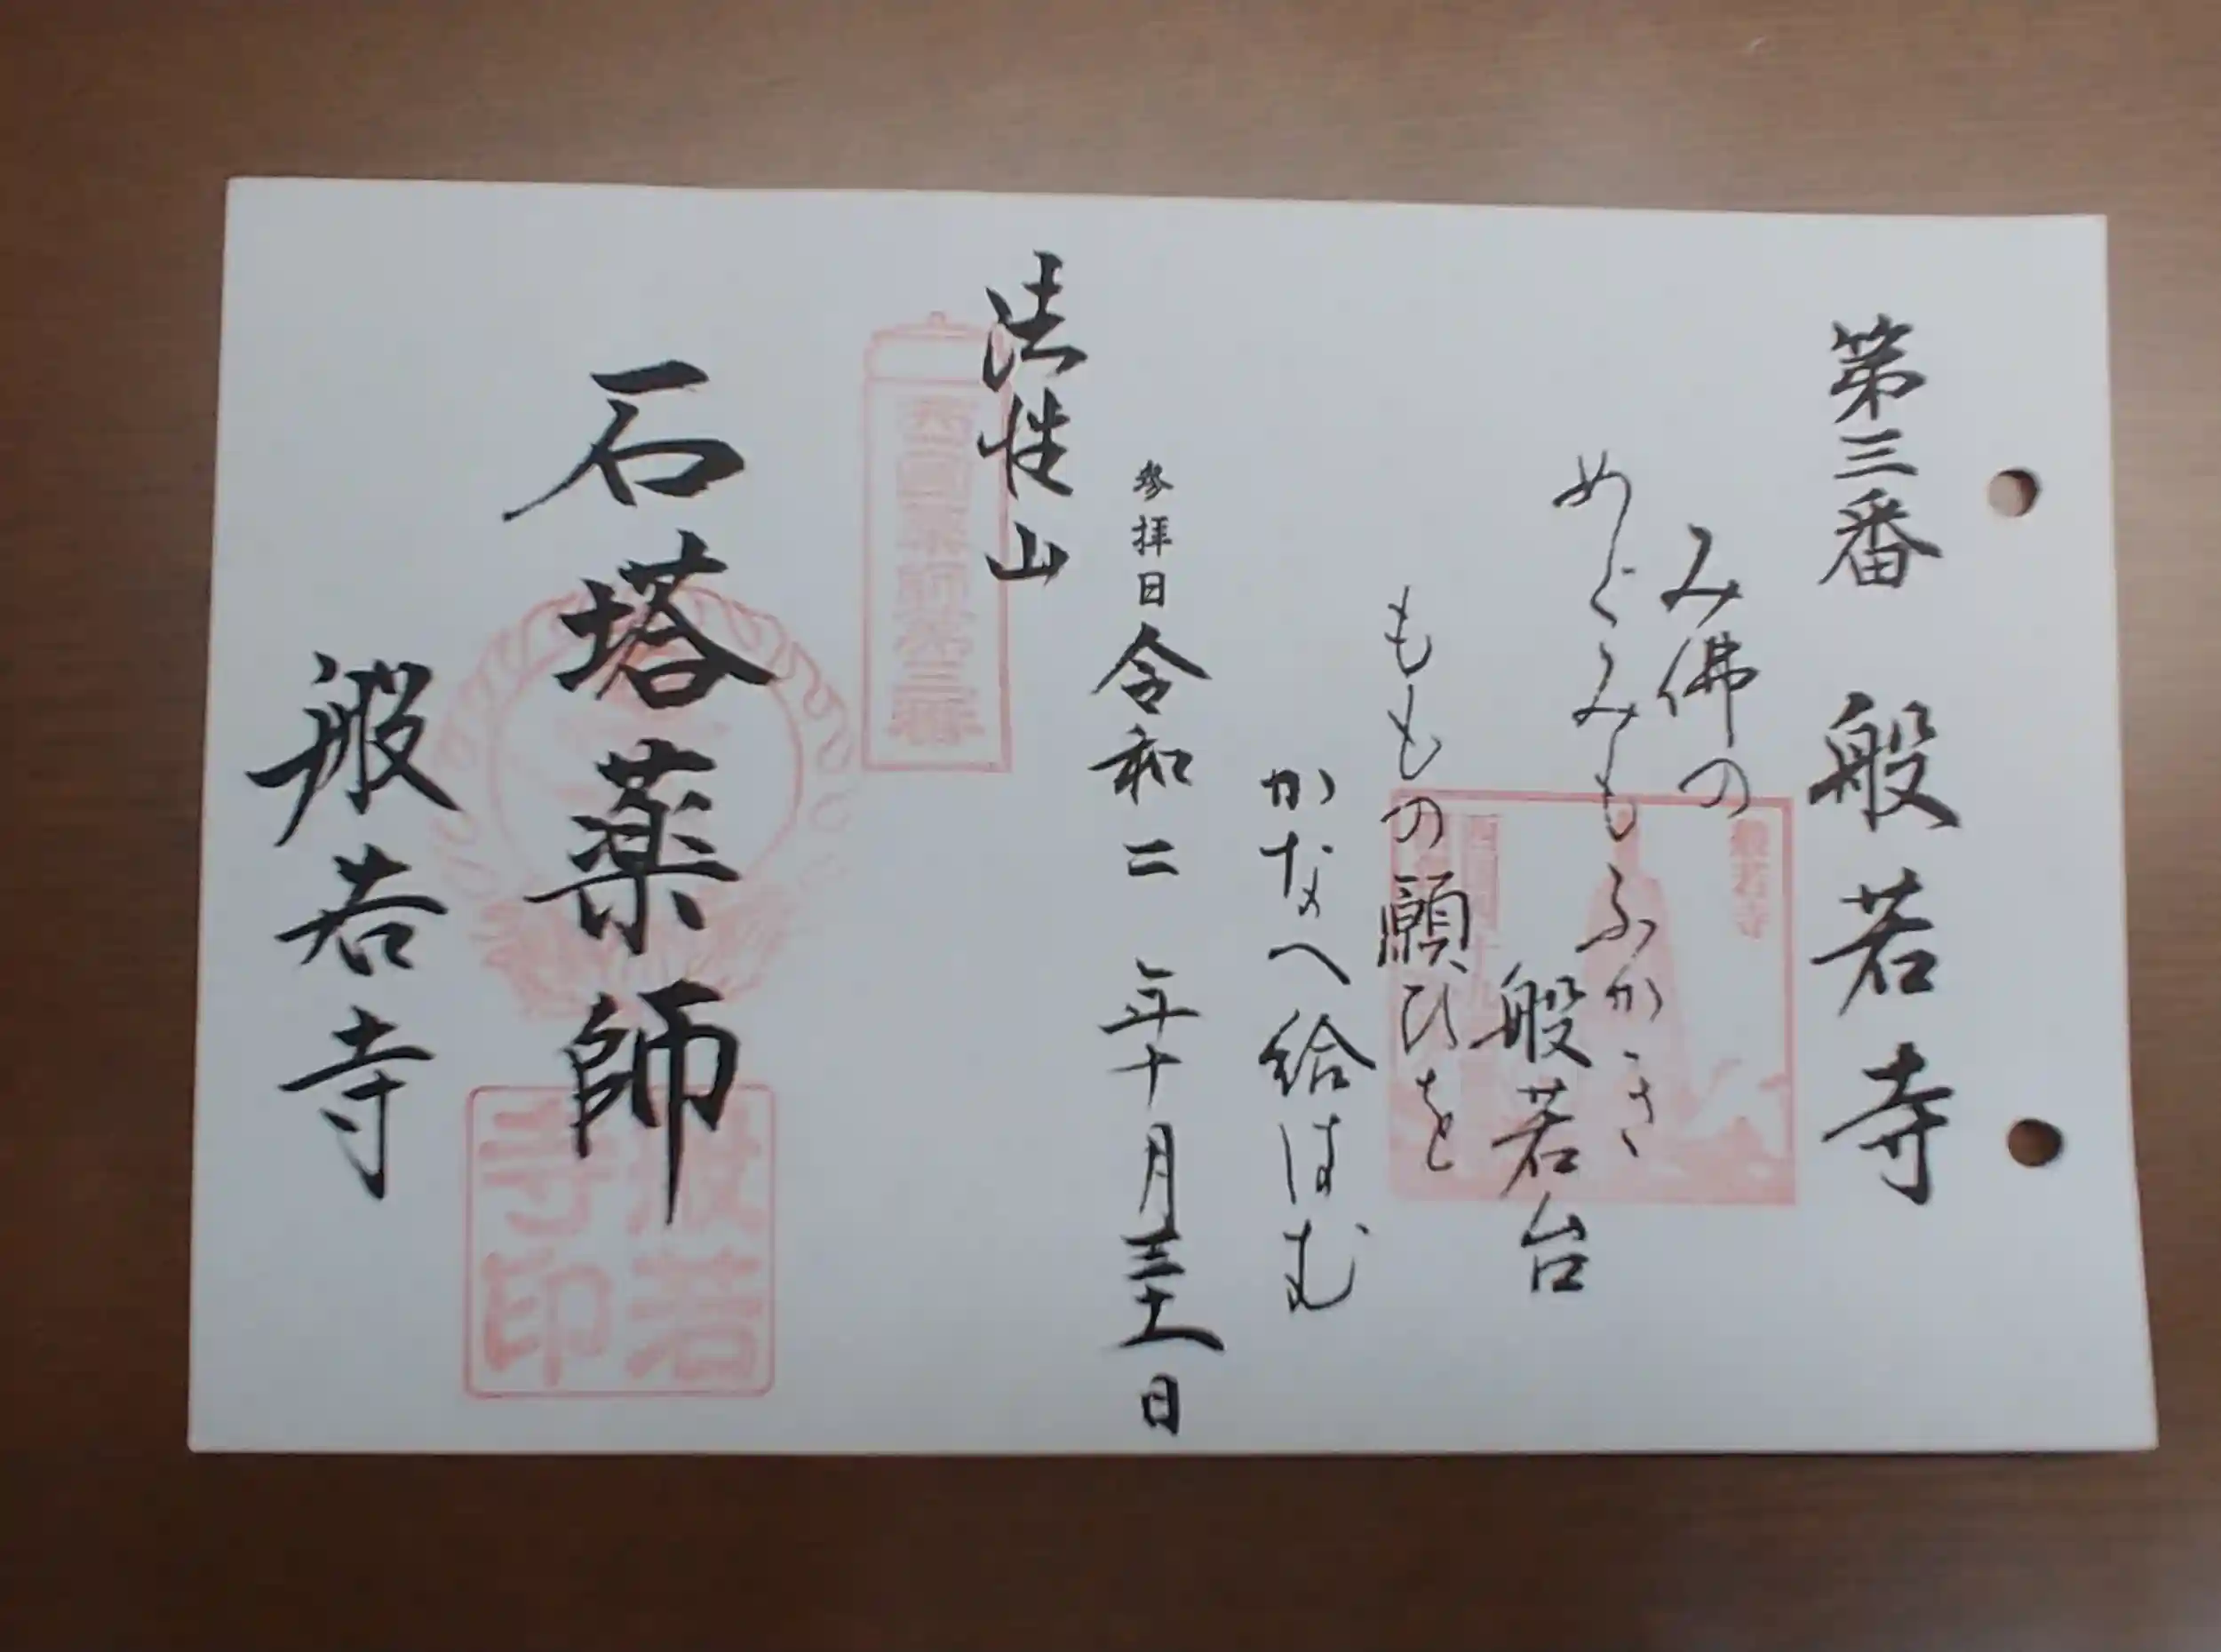 第三番 般若寺
み佛の
めぐみもふかき
般若台
ももの願ひを
かなへ給はむ
参拝日 令和二年十月三十一日
法性山
石塔薬師
般若寺
般若寺
西国薬師第三番
般若寺印